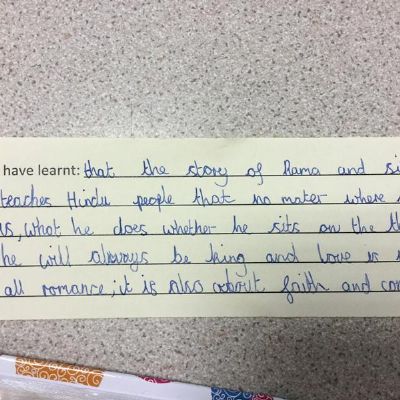 have learnt: that the story of Rama and si
teaches Hindu people that no mater where
is, what he does whether he sits on the th
he will always be king and love is
all romance, it is also about faith and co